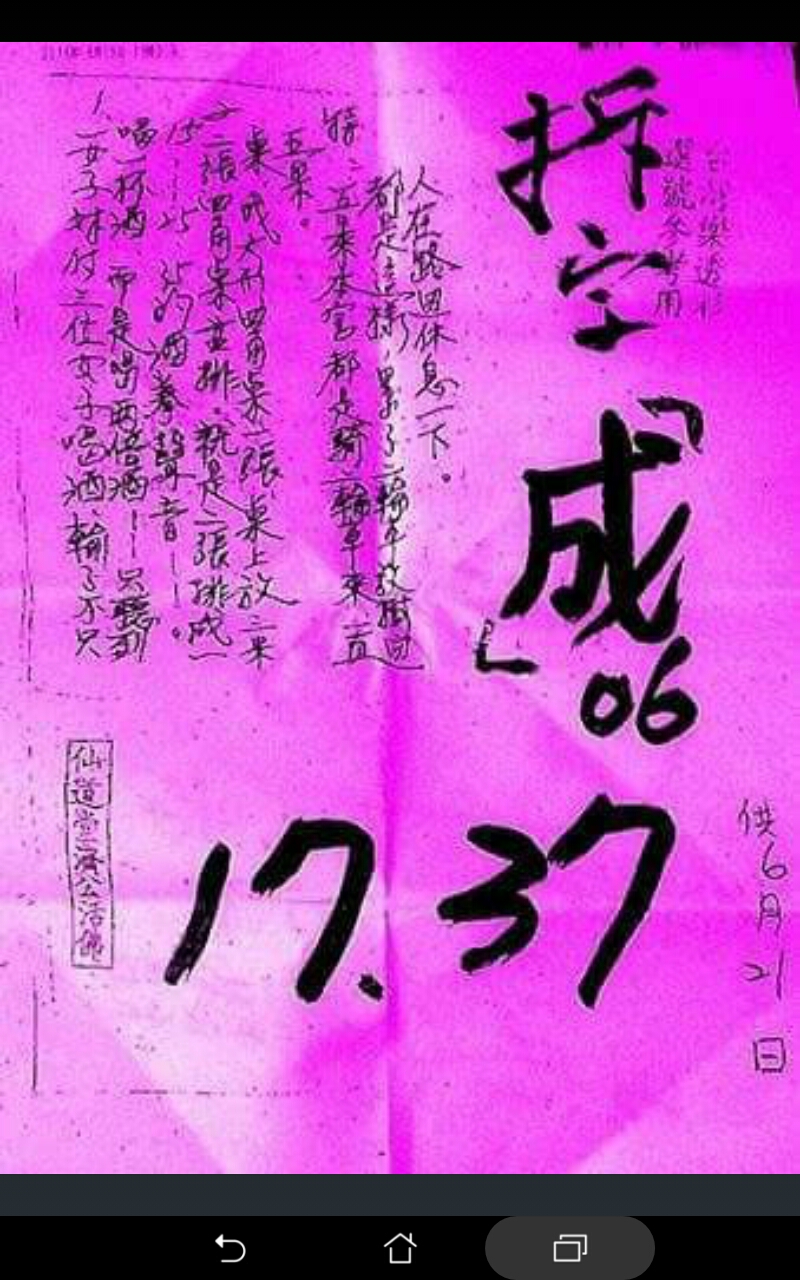 台灣樂透彩
選號參考用
拆字「成」
06
37
17.
供6月21日
1、一女子妹付三位女子喝酒、輸了不只
喝一杯酒,而是喝兩倍酒——只聽到
15——25、35的酒拳聲音——。
2、二張四角桌並排。就是二張排成一
桌,成大形四角桌一張、桌上放二米
五果。
特、五果本宮都是騎二輪車來一直
都是這樣,累了二輪車放樹邊
人在路邊休息一下。
仙道堂濟公活佛